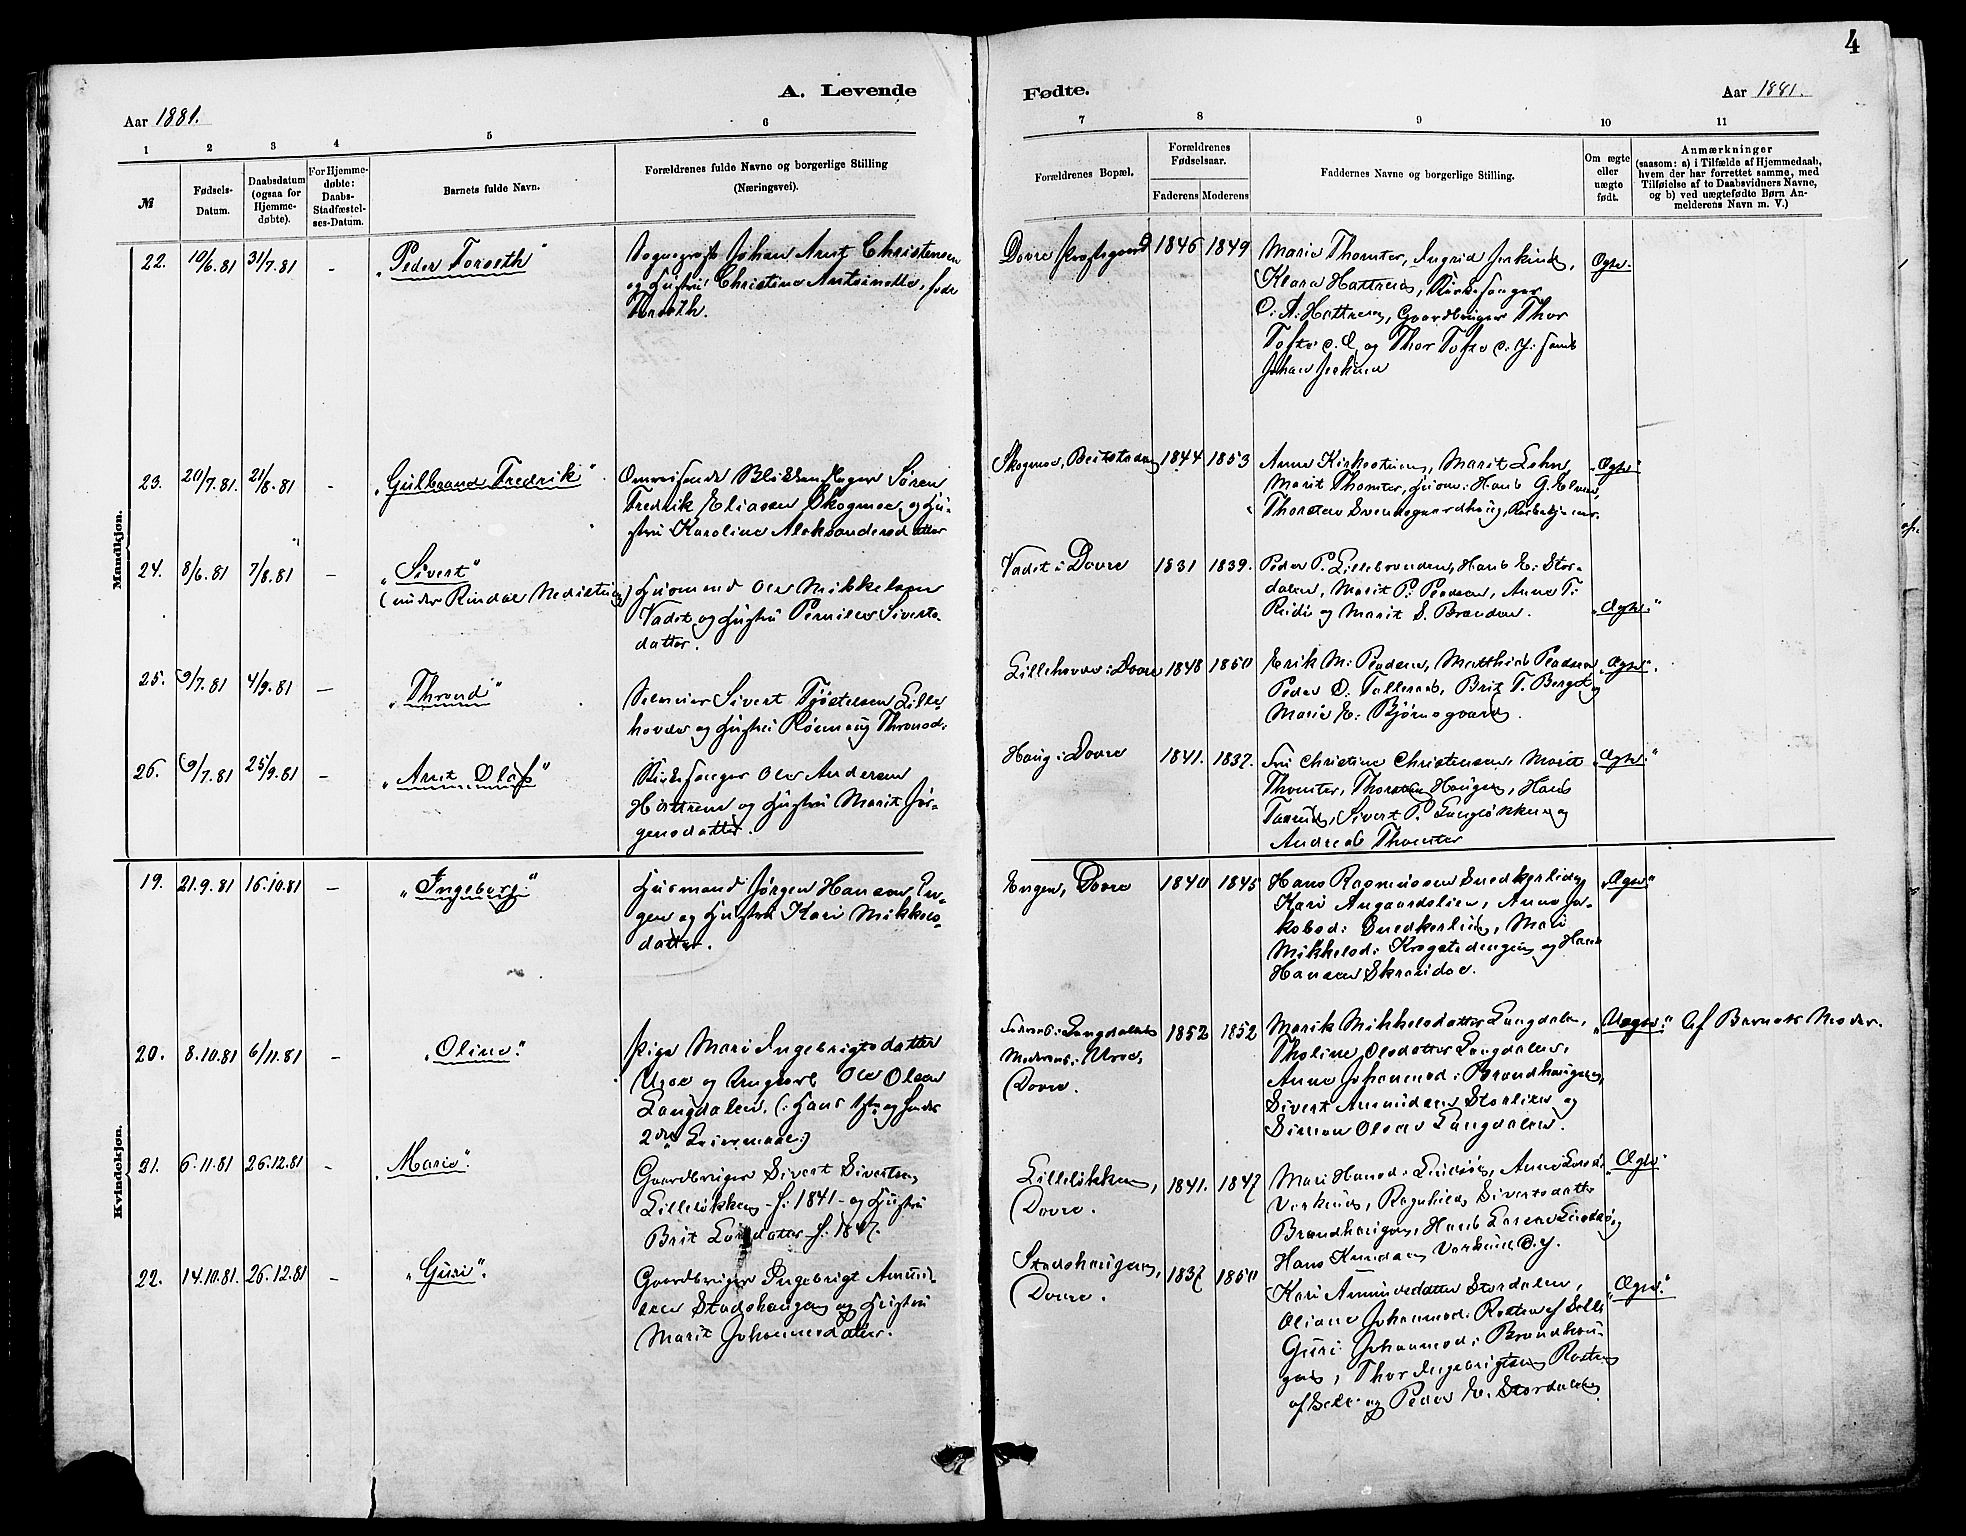 4
A. Levende
Fødte.
Aar 1881.
Aar 1881.
1 2 3 4 5 6
7 8 9 10 11
№
Fødsels-
Datum.
Daabsdatum
(ogsaa for
Hjemme-
døbte).
For Hjemme-
døbte:
Daabs-
Stadfæstel-
ses-Datum.
Barnets fulde Navn.
Forældrenes fulde Navne og borgerlige Stilling
(Næringsvei).
Forældrenes Bopæl.
Forældrenes
Fødselsaar.
Faderens Moderens
Faddernes Navne og borgerlige Stilling.
Om ægte
eller
uægte
født.
Anmærkninger
(saasom: a) i Tilfælde af Hjemmedaab,
hvem der har forrettet samme, med
Tilføielse af to Daabsvidners Navne,
og b) ved uægtefødte Børn An-
melderens Navn m. V.)
Mandkjøn.
22. 10/6.81 31/7.81 - "Peder Forseth"
Sognepræst Johan Arnt Christensen
og Hustru Christine Antoinette, føde
Forseth.
Dovre Præstegaard 1846 1849
Marie Thomter, Ingrid Jerkind,
Klara Hattrem, Kirkesanger
O. A. Hattrem, Gaardbruger Thor
Tofte d. Æ og Thor Tofte d. y. samt
Johan Jerkind
Ægte.
23. 20/7.81. 21/8.81 - "Gulbrand Fredrik"
Omreisende Blikkenslager Søren
Fredrik Eliassen Skogmoe og Hu-
stru Karoline Aleksandersdatter
Skogmoe, Beitstaden 1844 1853
Anne Kirkestuen, Marit Lohn,
Marit Thomter, Husm: Hans G. 
Thorsten Svensgaardhaug, 
"Ægte"
24. 8/6.81 7/8.81 - "Sivert"
(under Rindal Nedistuen)
Husmand Ole Mikkelsen
Vadet og Hustru Pernille Siverts-
datter.
Vadet i Dovre 1831 1839.
Peder P. Lillebrenden, Hans E. Stor-
dalen, Marit P. Pladsen, Anne T.
 og Marit S. Brænden.
"Ægte."
25. 9/7.81 4/9.81 - "Thrond"
Selveier Sivert Tjøstelsen Lille-
hovde og Hustru Rønnaug Thronsd:
Lillehovde i Dovre 1848 1850
Erik M. Pladsen, Matthias Pladsen
Peder O. Talleraas, Brit T. Berget og
Marie E. Bjørnsgaard.
"Ægte".
26. 9/7.81 25/9.81 - "Arnt Olaf"
Kirkesanger Ole Andersen
Hattrem og Hustru Marit Jør-
gensdatter.
Haug i Dovre 1841. 1837.
Fru Christine Christensen, Marit
Thomter, Thorsten Haugen, Hans
 Sivert P. Langløkken og
Andreas Thomter
"Ægte."
Kvindekjøn.
19. 21.9.81 16.10.81 - "Ingeborg."
Husmand Jørgen Hansen En-
gen og Hustru Kari Mikkels-
datter.
Engen, Dovre 1840 1845
Hans Rasmussen Snedkerlien
Kari Angaardslien, Anne Ja-
kobsd: Snedkerlien, Mari
Mikkelsd: Krogstadengen og Hans
Hansen 
"Ægte"
20. 8.10.81 6/11.81 - "Oline."
Pige Mari Ingebrigtsdatter
 og Ungkarl Ole Olsen
Langdalen. (: Hans 1ste og hendes
2det Leiermaal:)
Faderens: Langdalen
Moderens: 
Dovre.
1852 1852
Marit Mikkelsdatter Langdalen,
Tholine Olsdatter Langdalen,
Anne Johannesd: Brandhaugen,
Sivert Amundsen Storlien og
Simen Olsen Langdalen.
"Uægte." Af Barnets Moder.
21. 6.11.81 26.12.81 - "Marie".
Gaardbruger Sivert Sivertsen
Lilleløkken - f. 1841 - og Hustru
Brit Larsdatter f. 1847.
Lilleløkken,
Dovre.
1841. 1847
Mari Hansd: Lindsø, Anne Larsd:
Vorkind, Ragnhild Sivertsdatter
Brandhaugen, Hans Larsen Lindsø og
Hans Knudsen Vorkind d. y.
"Ægte"
22. 14.10.81. 26.12.81 - "Guri".
Gaardbruger Ingebrigt Amund-
sen Stadshaugen og Hustru
Marit Johannesdatter.
Stadshaugen,
Dovre.
1837 1850
Kari Amundsdatter Stordalen,
Oliane Johannesd: Rosten af Sell
Guri Johannesd: Brandhau-
gen, Thor Ingebrigtsen Rosten
af Sell og Peder E. Stordalen.
"Ægte."